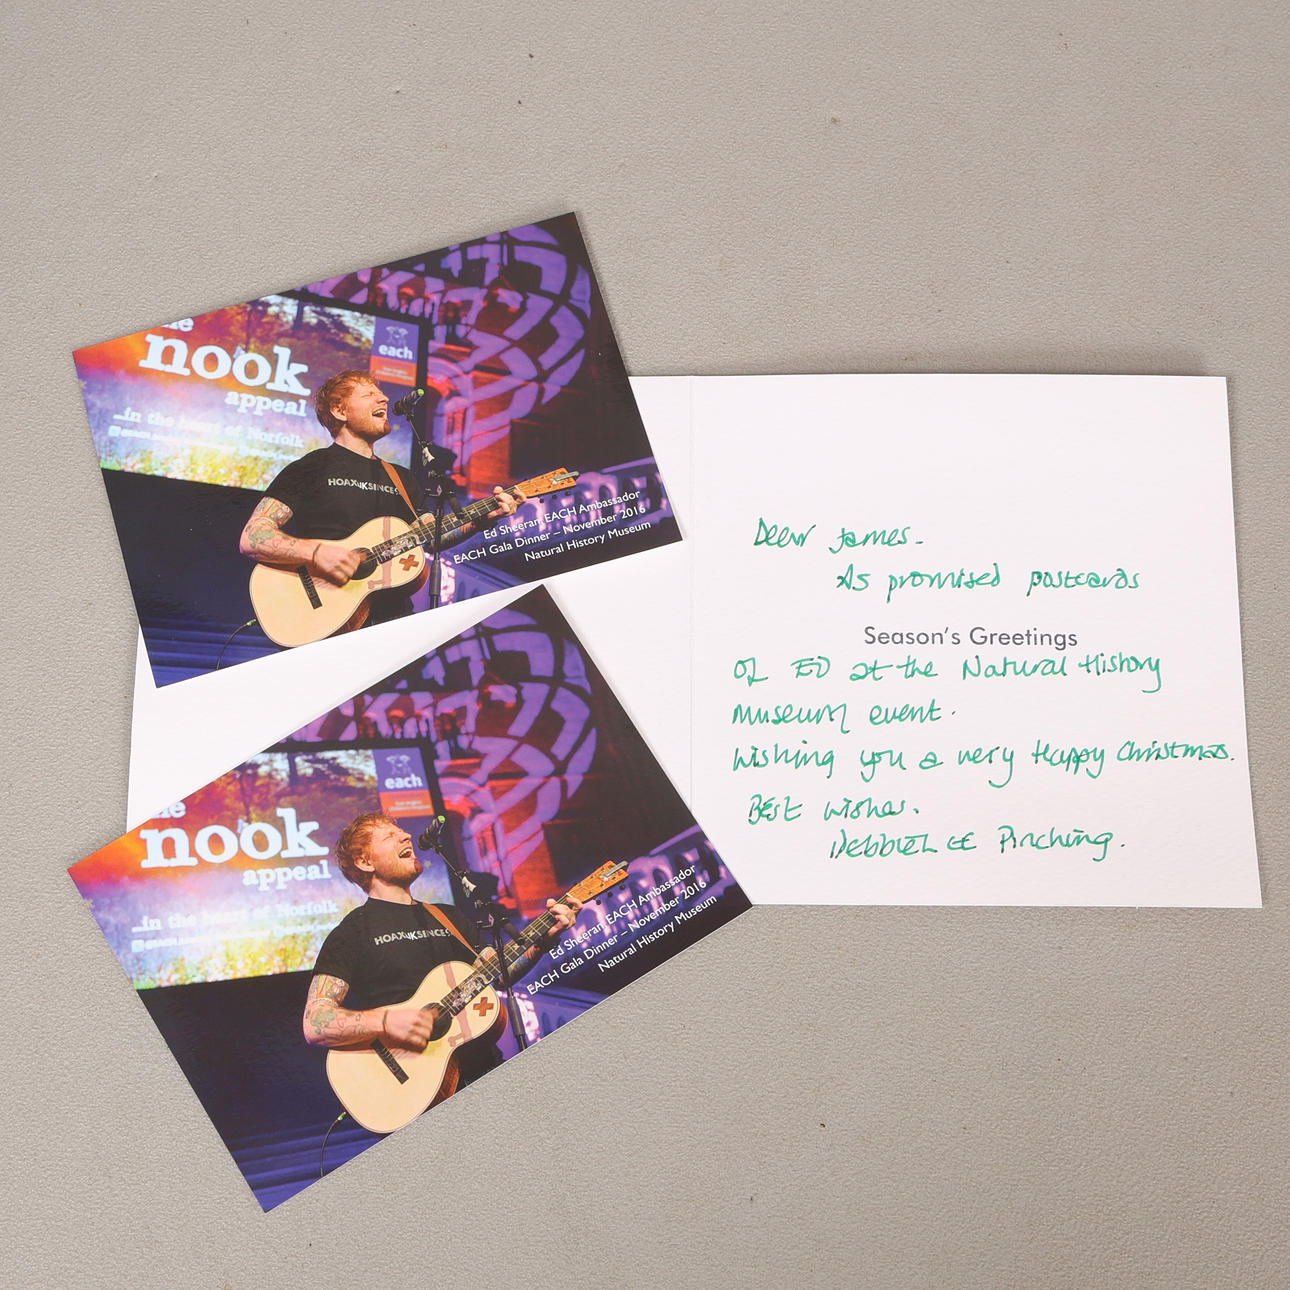 nook
appeal
...in the heart of Norfolk
each
HOAXUKSENCES
Ed Sheeran, EACH Ambassador
EACH Gala Dinner – November 2016
Natural History Museum
nook
appeal
...in the heart of Norfolk
each
HOAXUKSENCES
Ed Sheeran, EACH Ambassador
EACH Gala Dinner – November 2016
Natural History Museum
Dear James.
As promised postcards
Season's Greetings
of ED at the Natural History
Museum event.
Wishing you a very Happy Christmas.
Best wishes.
Pinching.